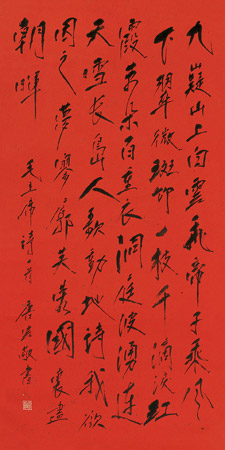 九嶷山上白雲飛帝子乘風
下翠微斑竹一枝千滴淚紅
霞万朵百重衣洞庭波湧連
天雪長島人歌動地詩我欲
因之夢寥廓芙蓉國裏盡
朝暉
毛主席詩一首